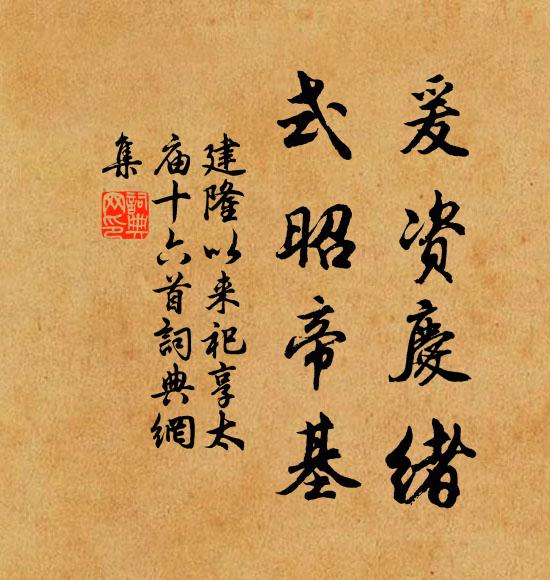 爰资慶绪
式昭帝基
建隆以来祀享太
庙十六首詞典網
集
詞典
网印